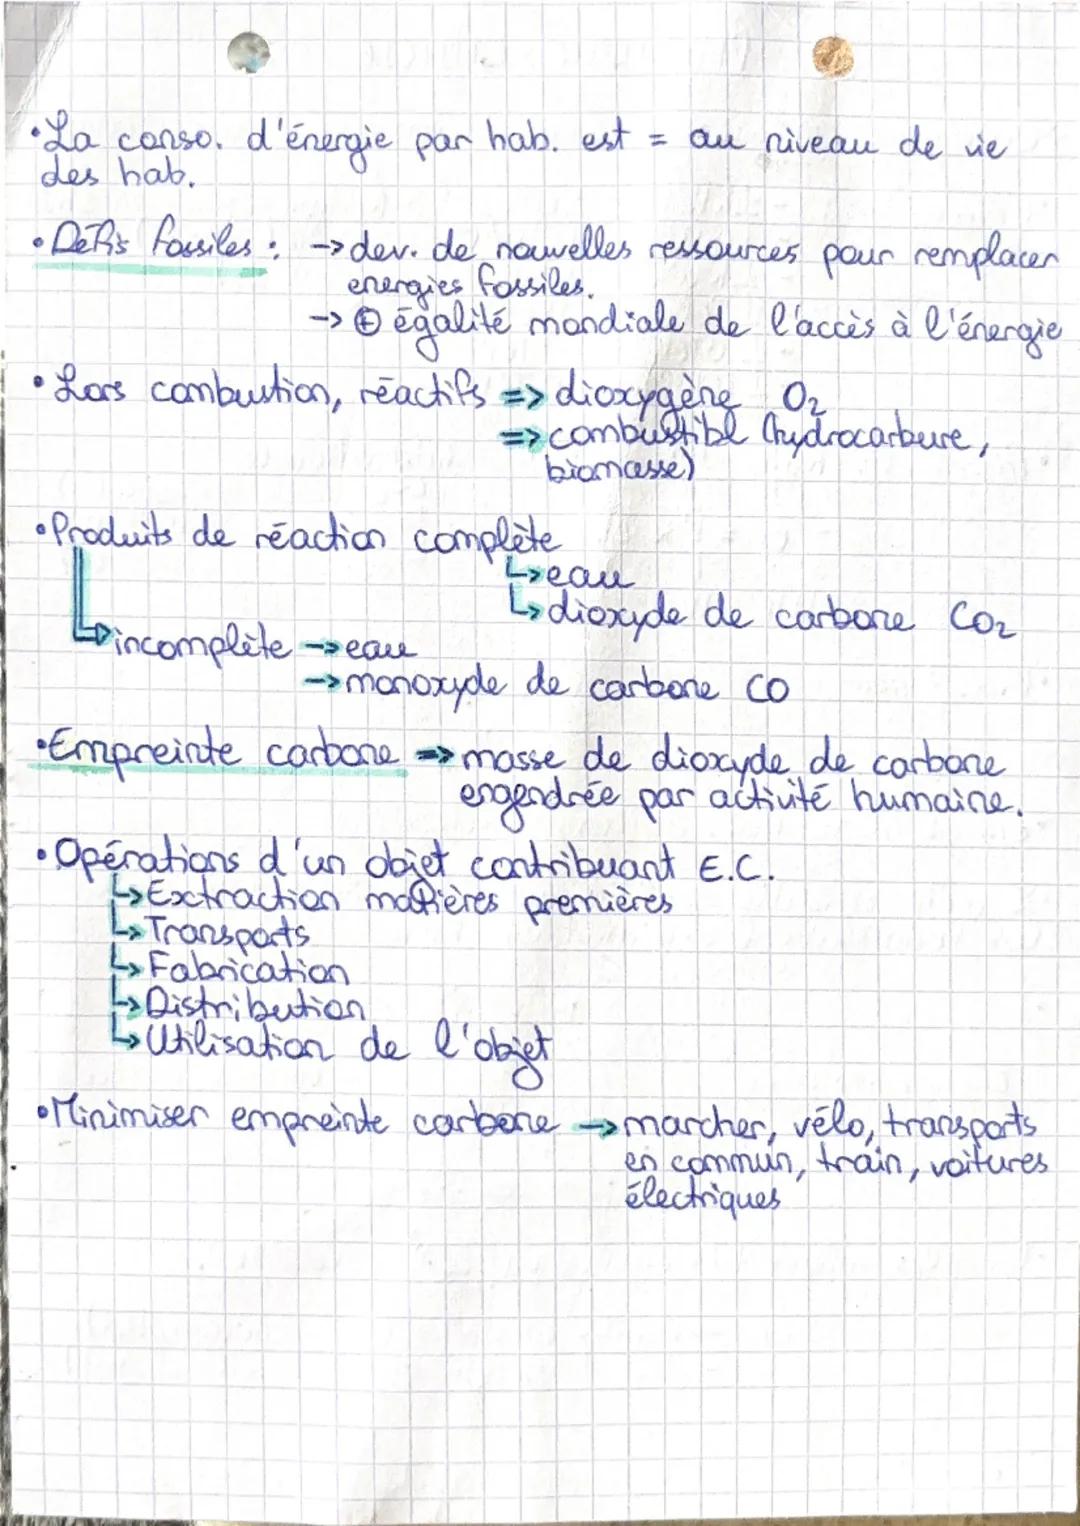 • La conso. d'énergie par hab. est = au niveau de vie
des hab.
• Défis fossiles : → dev. de nouvelles ressources pour remplacer
energies fossiles.
→ ⊕ égalité mondiale de l'accès à l'énergie
• Lors combustion, réactifs => dioxygène O₂
=> combustibl (hydrocarbure,
biomasse)
• Produits de réaction complète
↳ eau
↳ dioxyde de carbone CO₂
incomplète → eau
→ monoxyde de carbone CO
• Empreinte carbone => masse de dioxyde de carbone
engendrée par activité humaine.
• Opérations d'un objet contribuant E.C.
↳ Extraction matières premières
↳ Transports
↳ Fabrication
↳ Distribution
↳ Utilisation de l'objet
• Minimiser empreinte carbone → marcher, vélo, transports
en commun, train, voitures
électriques